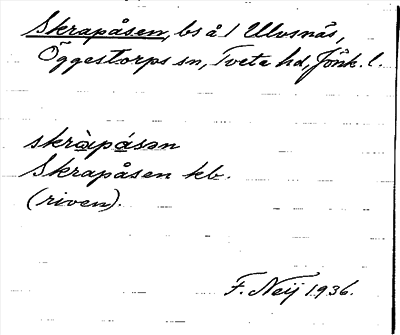 Skrapåsen, bs å 1 Ulvsnäs,
Öggestorps sn, Tveta hd, Jönk. l.
skràpåsən
Skrapåsen kb.
(riven).
F. Neij 1936.